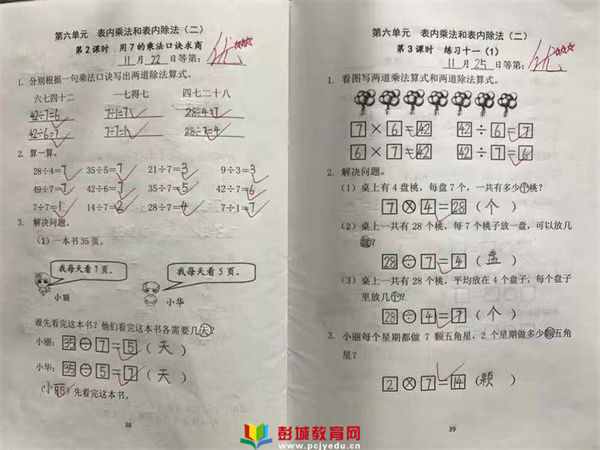 第六单元 表内乘法和表内除法（二）
第2课时 用7的乘法口诀求商
11月22日等第：优
1. 分别根据一句乘法口诀写出两道除法算式。
六七四十二 一七得七 四七二十八
42÷7=6 7÷1=7 28÷4=7
42÷6=7 7÷7=1 28÷7=4
2. 算一算。
28÷4=7 35÷5=7 21÷7=3 9÷3=3
49÷7=7 42÷6=7 35÷7=5 42÷7=6
7÷7=1 14÷7=2 28÷7=4 7÷1=7
3. 解决问题。
（1）一本书35页。
我每天看7页。 我每天看5页。
小丽 小华
谁先看完这本书？他们看完这本书各需要几天？
小丽：35÷7=5（天）
小华：35÷5=7（天）
（小丽）先看完这本书。
38
第六单元 表内乘法和表内除法（二）
第3课时 练习十一（1）
11月25日等第：优
1. 看图写两道乘法算式和两道除法算式。
7×6=42 42÷6=7
6×7=42 42÷7=6
2. 解决问题。
（1）桌上有4盘桃，每盘7个，一共有多少个桃？
7×4=28（个）
（2）桌上一共有28个桃，每7个桃子放一盘，可以放几
盘？
28÷7=4（盘）
（3）桌上一共有28个桃，平均放在4个盘子，每个盘子
里放几个？
28÷4=7（个）
3. 小丽每个星期都做7颗五角星，2个星期做多少颗五角
星？
2×7=14（颗）
39
彭城教育网
www.pcjyedu.cn